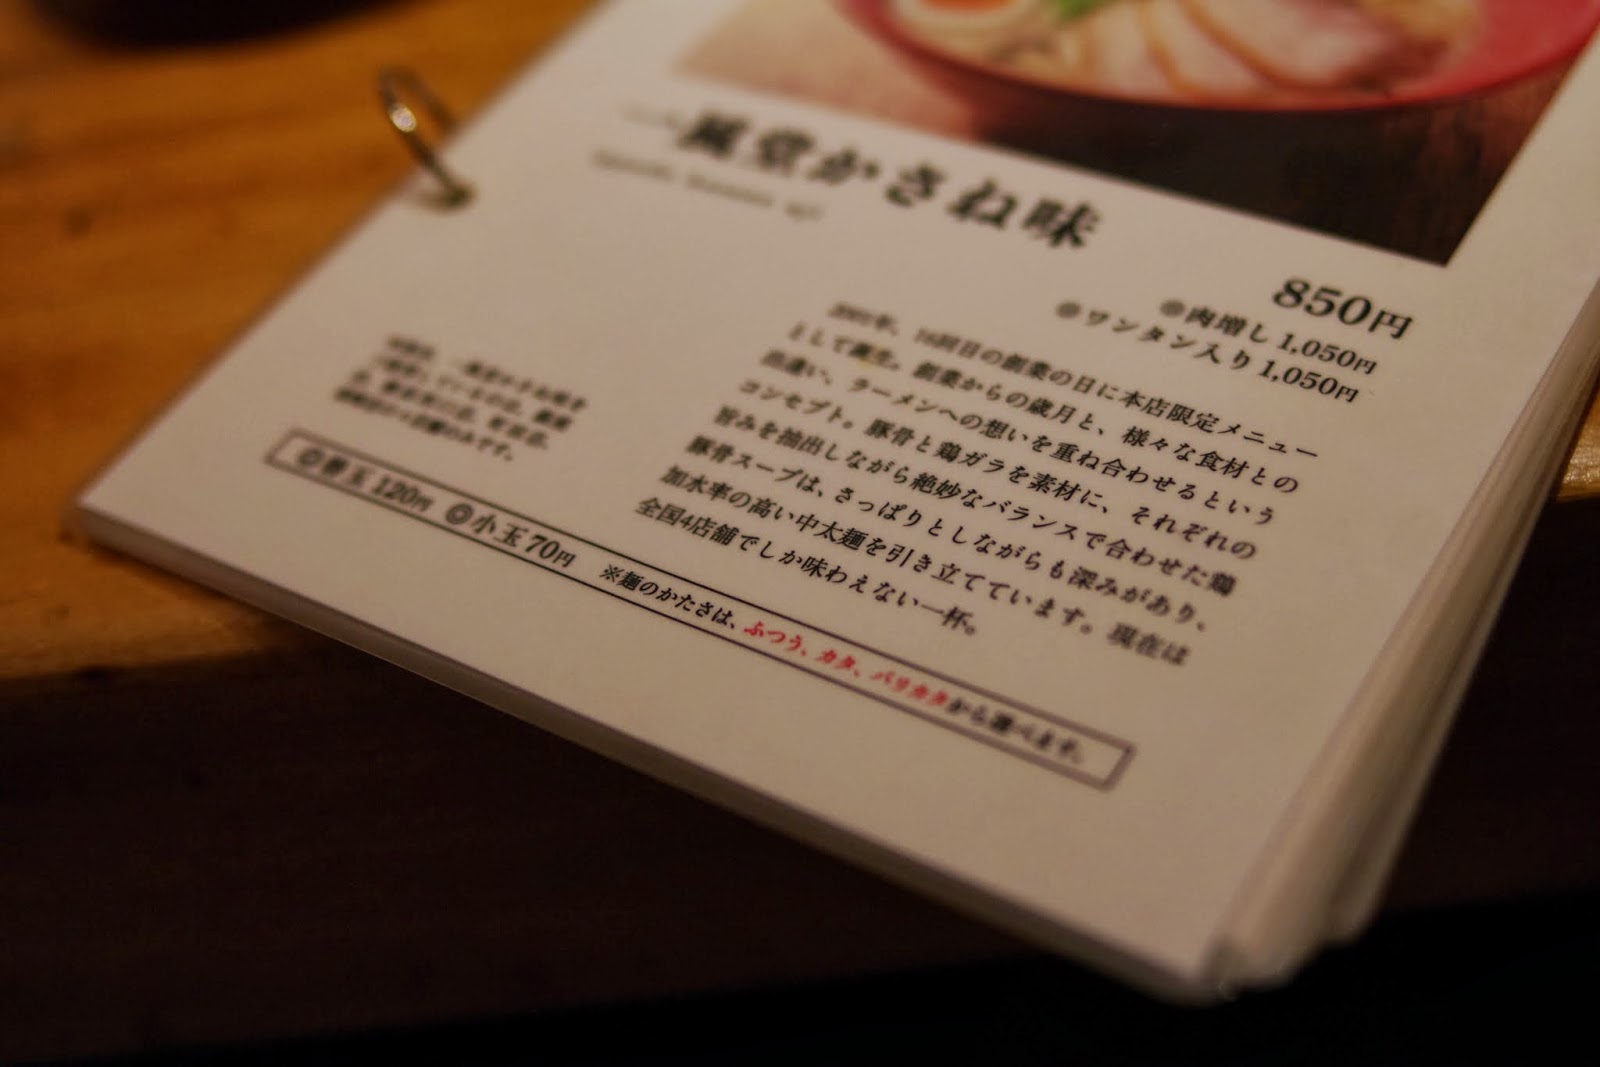 一風堂かさね味
850円
◎肉増し 1,050円
◎ワンタン入り 1,050円
16回目の創業の日に本店限定メニュー
として誕生。創業からの歳月と、様々な食材との
出逢い、ラーメンへの想いを重ね合わせるという
コンセプト。豚骨と鶏ガラを素材に、それぞれの
旨みを抽出しながら絶妙なバランスで合わせた鶏
豚骨スープは、さっぱりとしながらも深みがあり、
加水率の高い中太麺を引き立てています。現在は
全国4店舗でしか味わえない一杯。
◎替玉 120円 ◎小玉 70円 ※麺のかたさは、ふつう、カタ、バリカタから選べます。